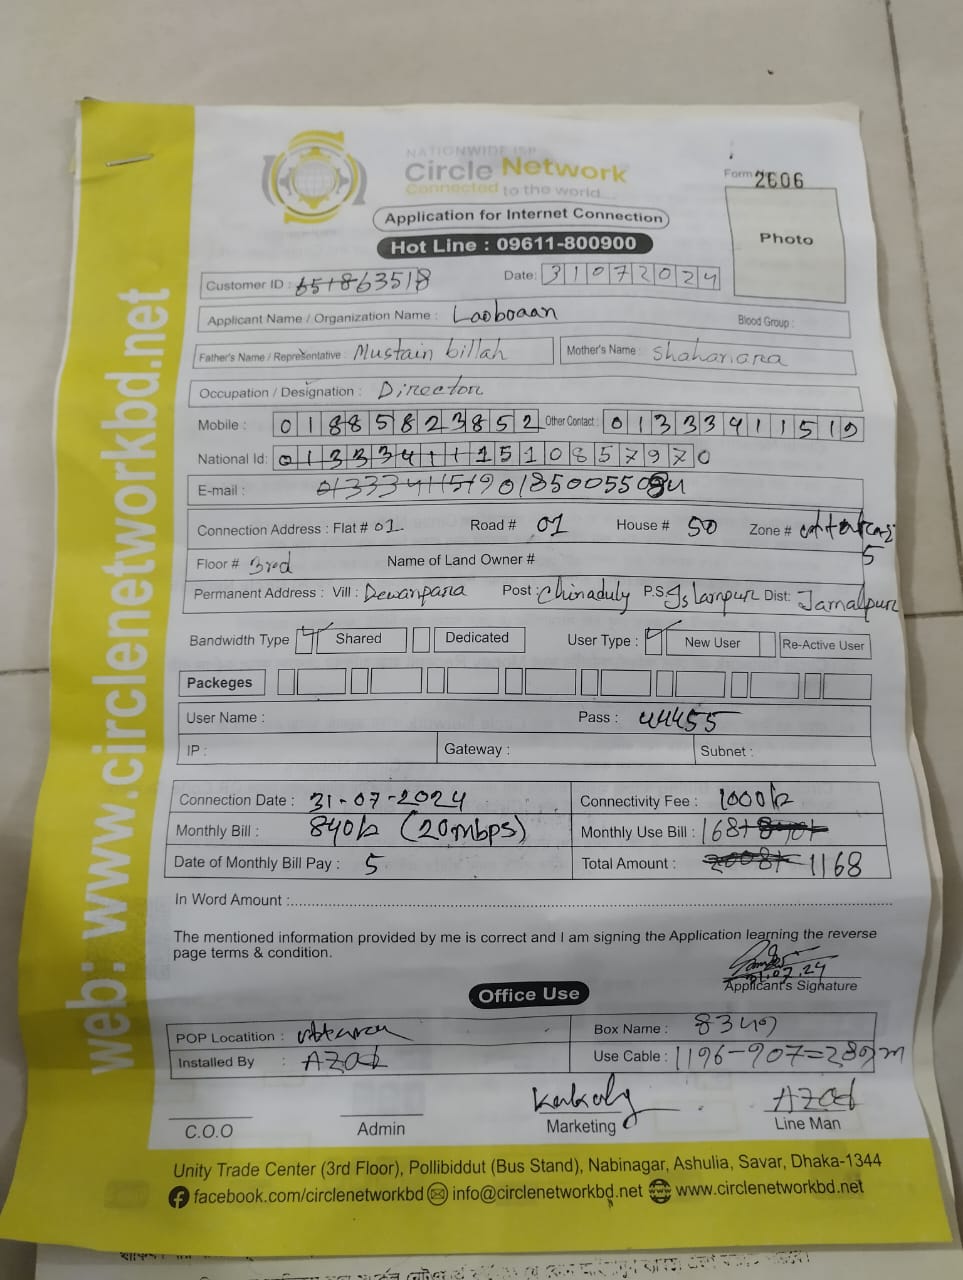 NATIONWIDE ISP
Circle Network
Connected to the world
Application for Internet Connection
Hot Line : 09611-800900
Form 2606
Photo
Customer ID : 651863518 Date: 31072024
Applicant Name / Organization Name : Laoboaan Blood Group :
Father's Name / Representative : Mustain billah Mother's Name : Shahariara
Occupation / Designation : Director
Mobile : 01885823852 Other Contact : 01333411519
National Id: 5108579770
E-mail :
Connection Address : Flat # 01 Road # 01 House # 50 Zone # 5
Floor # 3rd Name of Land Owner #
Permanent Address : Vill : Dewanpara Post : Chinaduly P.S Islampur Dist: Jamalpur
Bandwidth Type Shared Dedicated User Type : New User Re-Active User
Packeges
User Name : Pass : 44455
IP : Gateway : Subnet :
Connection Date : 31-07-2024 Connectivity Fee : 1000/=
Monthly Bill : 840/= (20mbps) Monthly Use Bill : 168+
Date of Monthly Bill Pay : 5 Total Amount : 1168
In Word Amount :
The mentioned information provided by me is correct and I am signing the Application learning the reverse
page terms & condition.
31.07.24
Applicant's Signature
Office Use
POP Locatition : Box Name :
Installed By : AZAD Use Cable : 1196-907=289m
AZAD
C.O.O Admin Marketing Line Man
Unity Trade Center (3rd Floor), Pollibiddut (Bus Stand), Nabinagar, Ashulia, Savar, Dhaka-1344
facebook.com/circlenetworkbd info@circlenetworkbd.net www.circlenetworkbd.net
web: www.circlenetworkbd.net